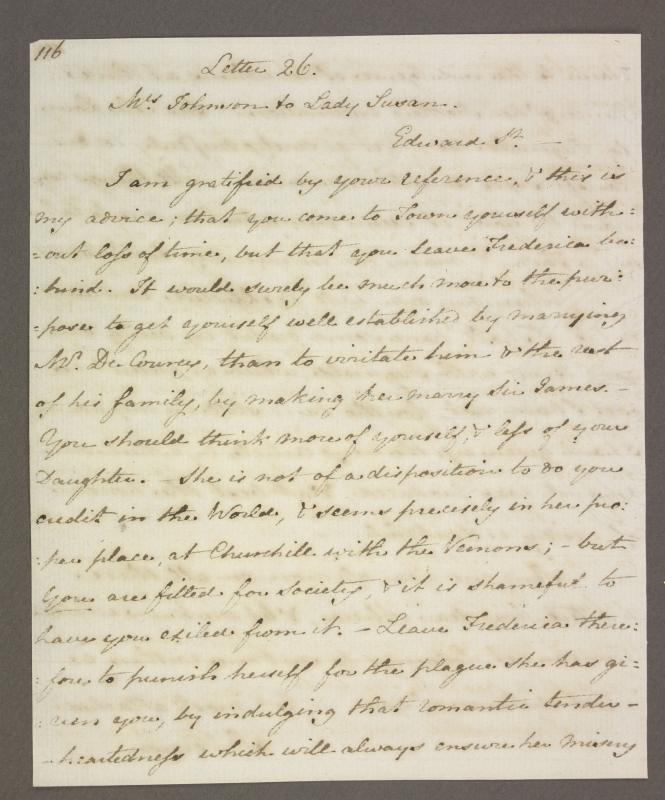 116
Letter 26.
Mrs Johnson to Lady Susan.
Edward St. —
I am gratified by your reference, & this is
my advice; that you come to Town yourself with:
:out loss of time, but that you leave Frederica be:
:hind. It would surely be much more to the pur:
:pose to get yourself well established by marrying
Mr. De Courcy, than to irritate him & the rest
of his family, by making her marry Sir James. —
You should think more of yourself, & less of your
Daughter. — She is not of a disposition to do you
credit in the World, & seems precisely in her pro:
:per place, at Churchill with the Vernons; — but
you are fitted for Society, & it is shameful to
have you exiled from it. — Leave Frederica there:
:fore to punish herself for the plague she has gi:
:ven you, by indulging that romantic tender –
– heartedness which will always ensure her misery